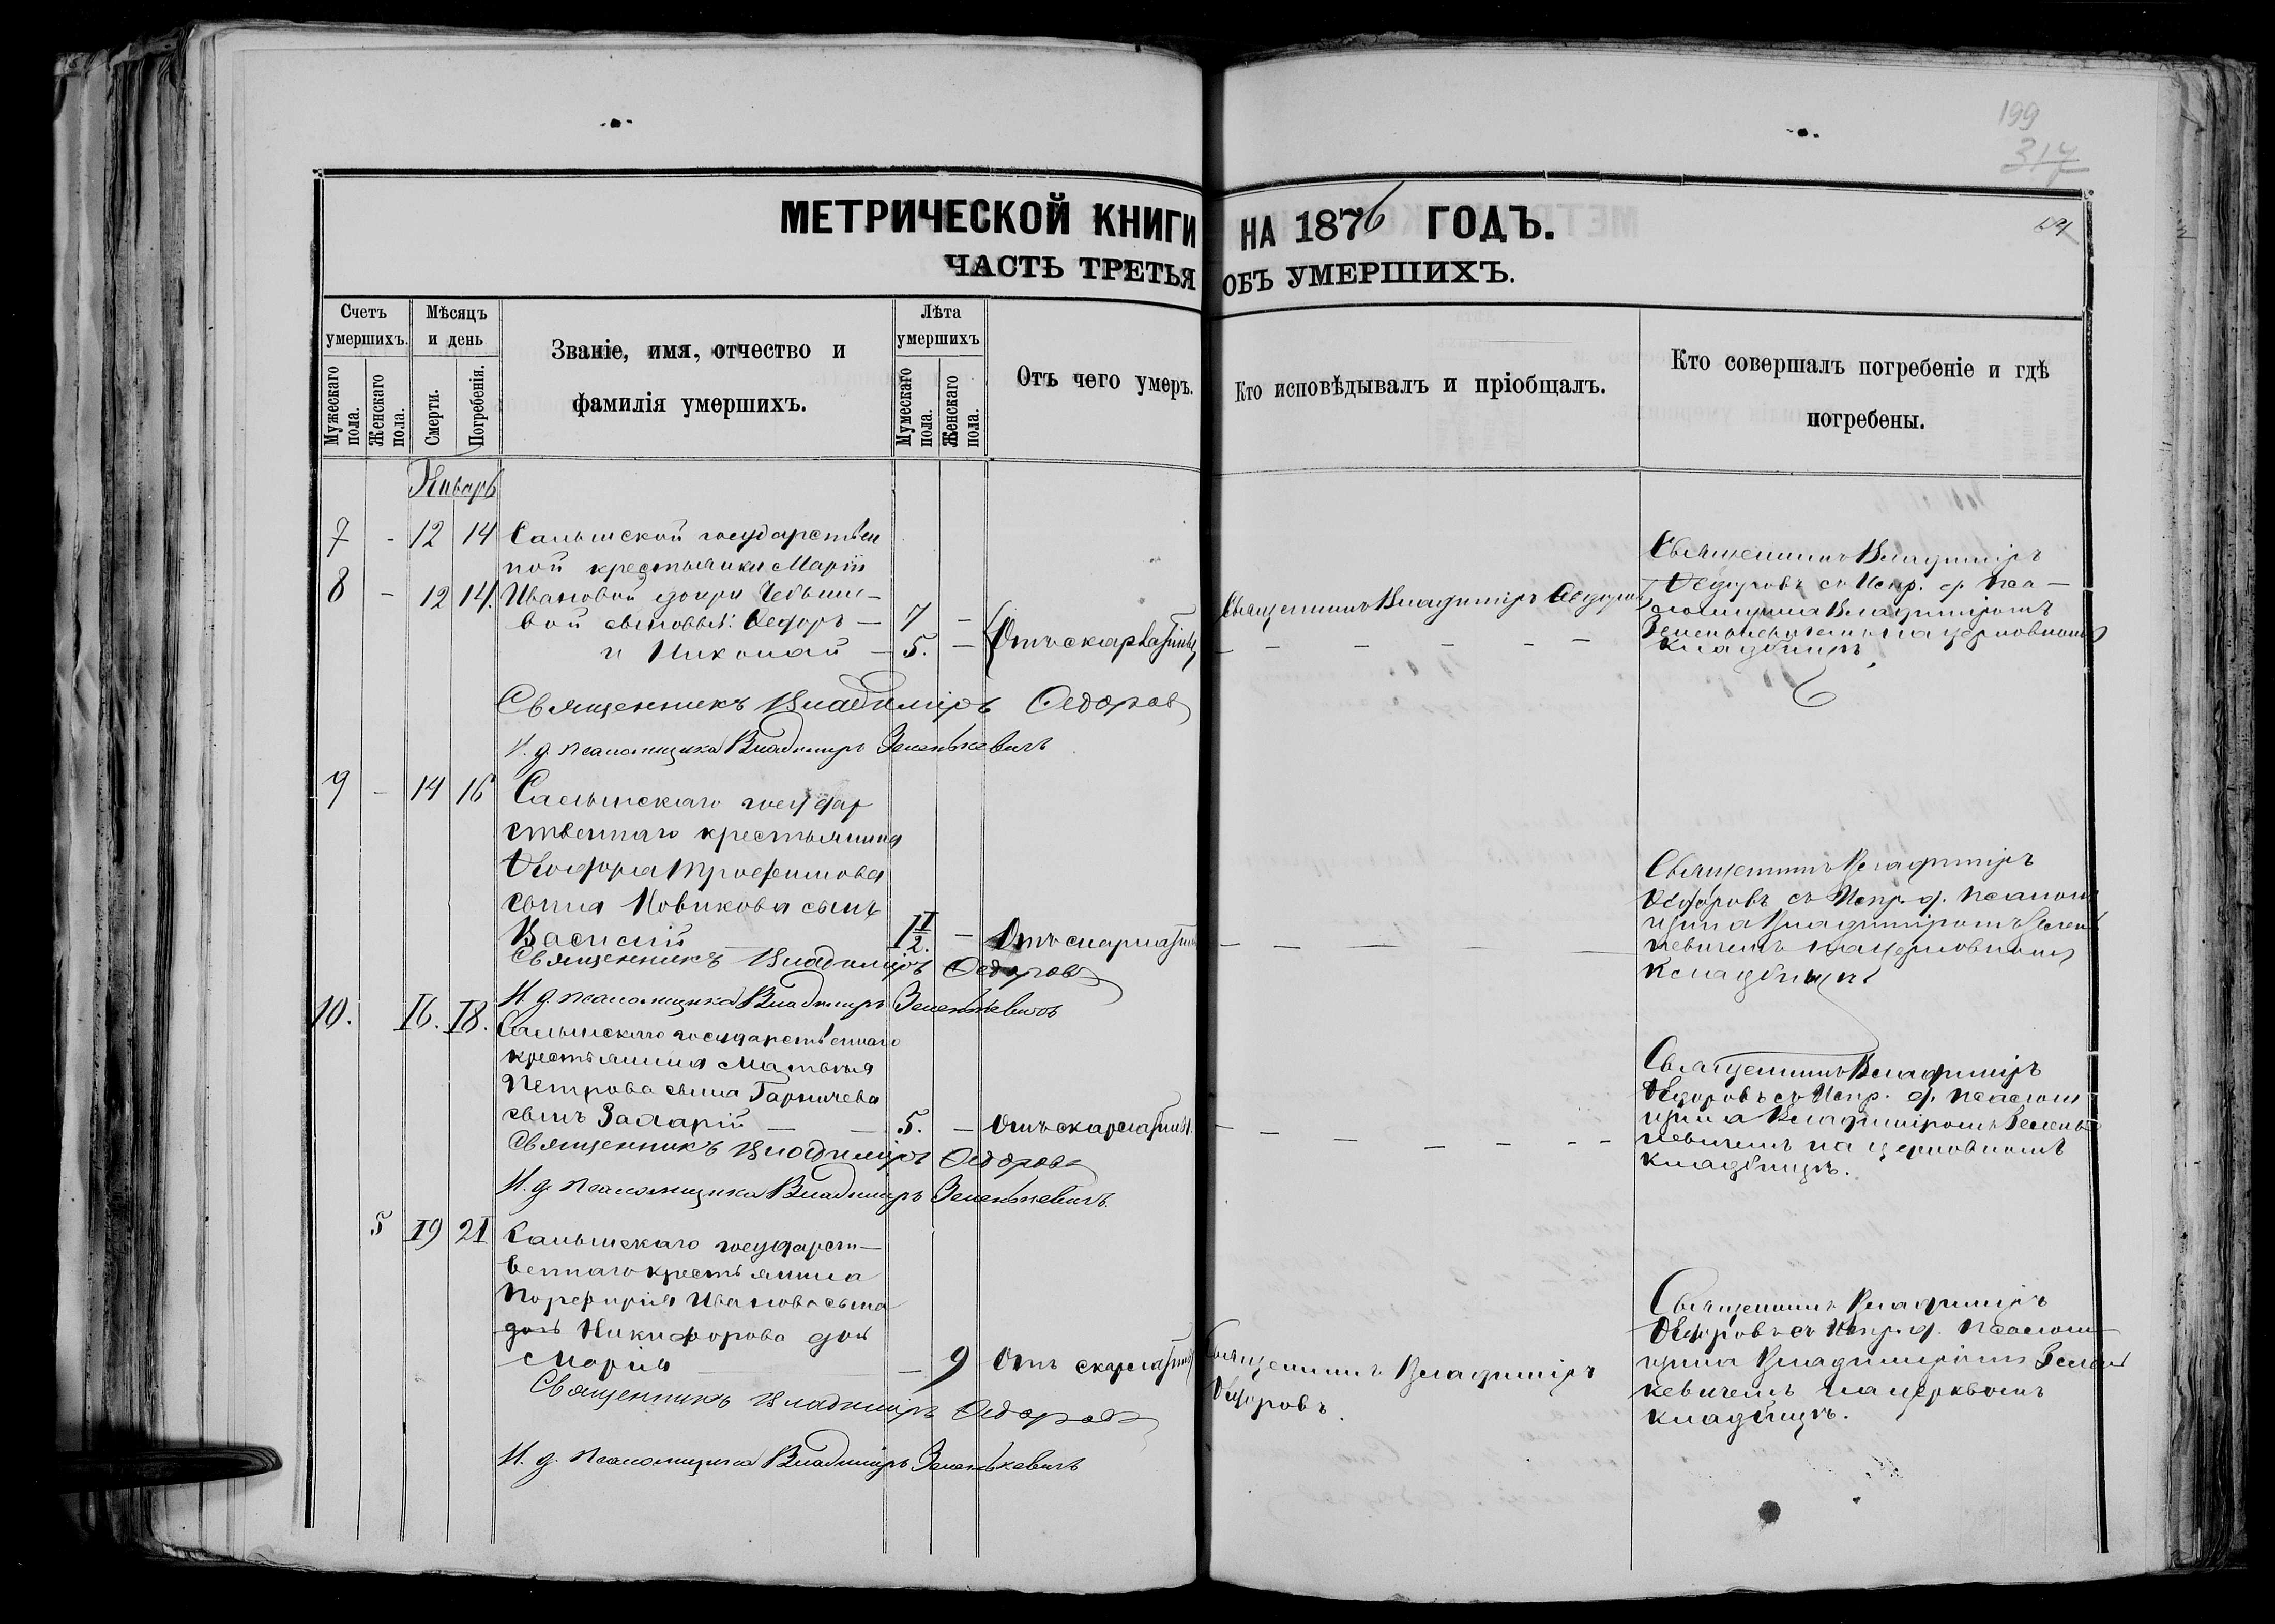 199
317
МЕТРИЧЕСКОЙ КНИГИ НА 1876 ГОДЪ.
ЧАСТЬ ТРЕТЬЯ ОБЪ УМЕРШИХЪ.
Счетъ умершихъ.
Мужескаго пола.
Женскаго пола.
Мѣсяцъ и день
Смерти.
Погребенія.
Званіе, имя, отчество и
фамилія умершихъ.
Лѣта умершихъ
Мужескаго пола.
Женскаго пола.
Отъ чего умеръ.
Кто исповѣдывалъ и пріобщалъ.
Кто совершалъ погребеніе и гдѣ
погребены.
Январь
7 - 12 14 государствен
ной крестьянки Маріи
8 - 12 14. Ивановой дочери
вой сыновья: Федоръ — 7 -
и Николай — 5. - Отъ скарлатины
Священникъ Владиміръ Федоровъ
Священникъ Владиміръ
Федоровъ съ Испр. д. Пса-
ломщика Владиміромъ
Зеленькевичемъ на церковномъ
кладбищѣ
Священникъ Владиміръ Федоровъ
И. д. псаломщика Владиміръ Зеленькевичъ
9 - 14 16 государ
ственнаго крестьянина
Трофимова
сына Новикова сынъ
Василій 1 1/2. - Отъ скарлатины
Священникъ Владиміръ
Федоровъ съ Испр. д. псалом
щика Владиміромъ Зелень
кевичемъ на церковномъ
кладбищѣ
Священникъ Владиміръ Федоровъ
И. д. псаломщика Владиміръ Зеленькевичъ
10. 16. 18. государственнаго
крестьянина
Петрова сына Гарничева
сынъ Захарій — 5. - Отъ скарлатины.
Священникъ Владиміръ
Федоровъ съ Испр. д. псалом
щика Владиміромъ Зелень
кевичемъ на церковномъ
кладбищѣ.
Священникъ Владиміръ Федоровъ
И. д. псаломщика Владиміръ Зеленькевичъ.
5 19 21 государст-
веннаго крестьянина
Порфирія Иванова сына
Никифорова дочь
Марія — 9 Отъ скарлатины
Священникъ Владиміръ
Федоровъ.
Священникъ Владиміръ
Федоровъ съ Испр. д. псалом-
щика Владиміромъ Зелень
кевичемъ на церквомъ
кладбищѣ.
Священникъ Владиміръ Федоровъ
И. д. псаломщика Владиміръ Зеленькевичъ